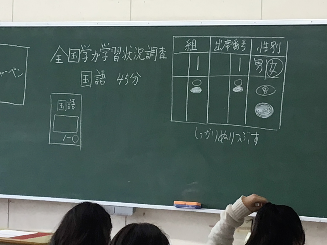 全国学力学習状況調査
国語 45分
国語
組 出席番号 性別
1 1 男 女
しっかりぬりつぶす